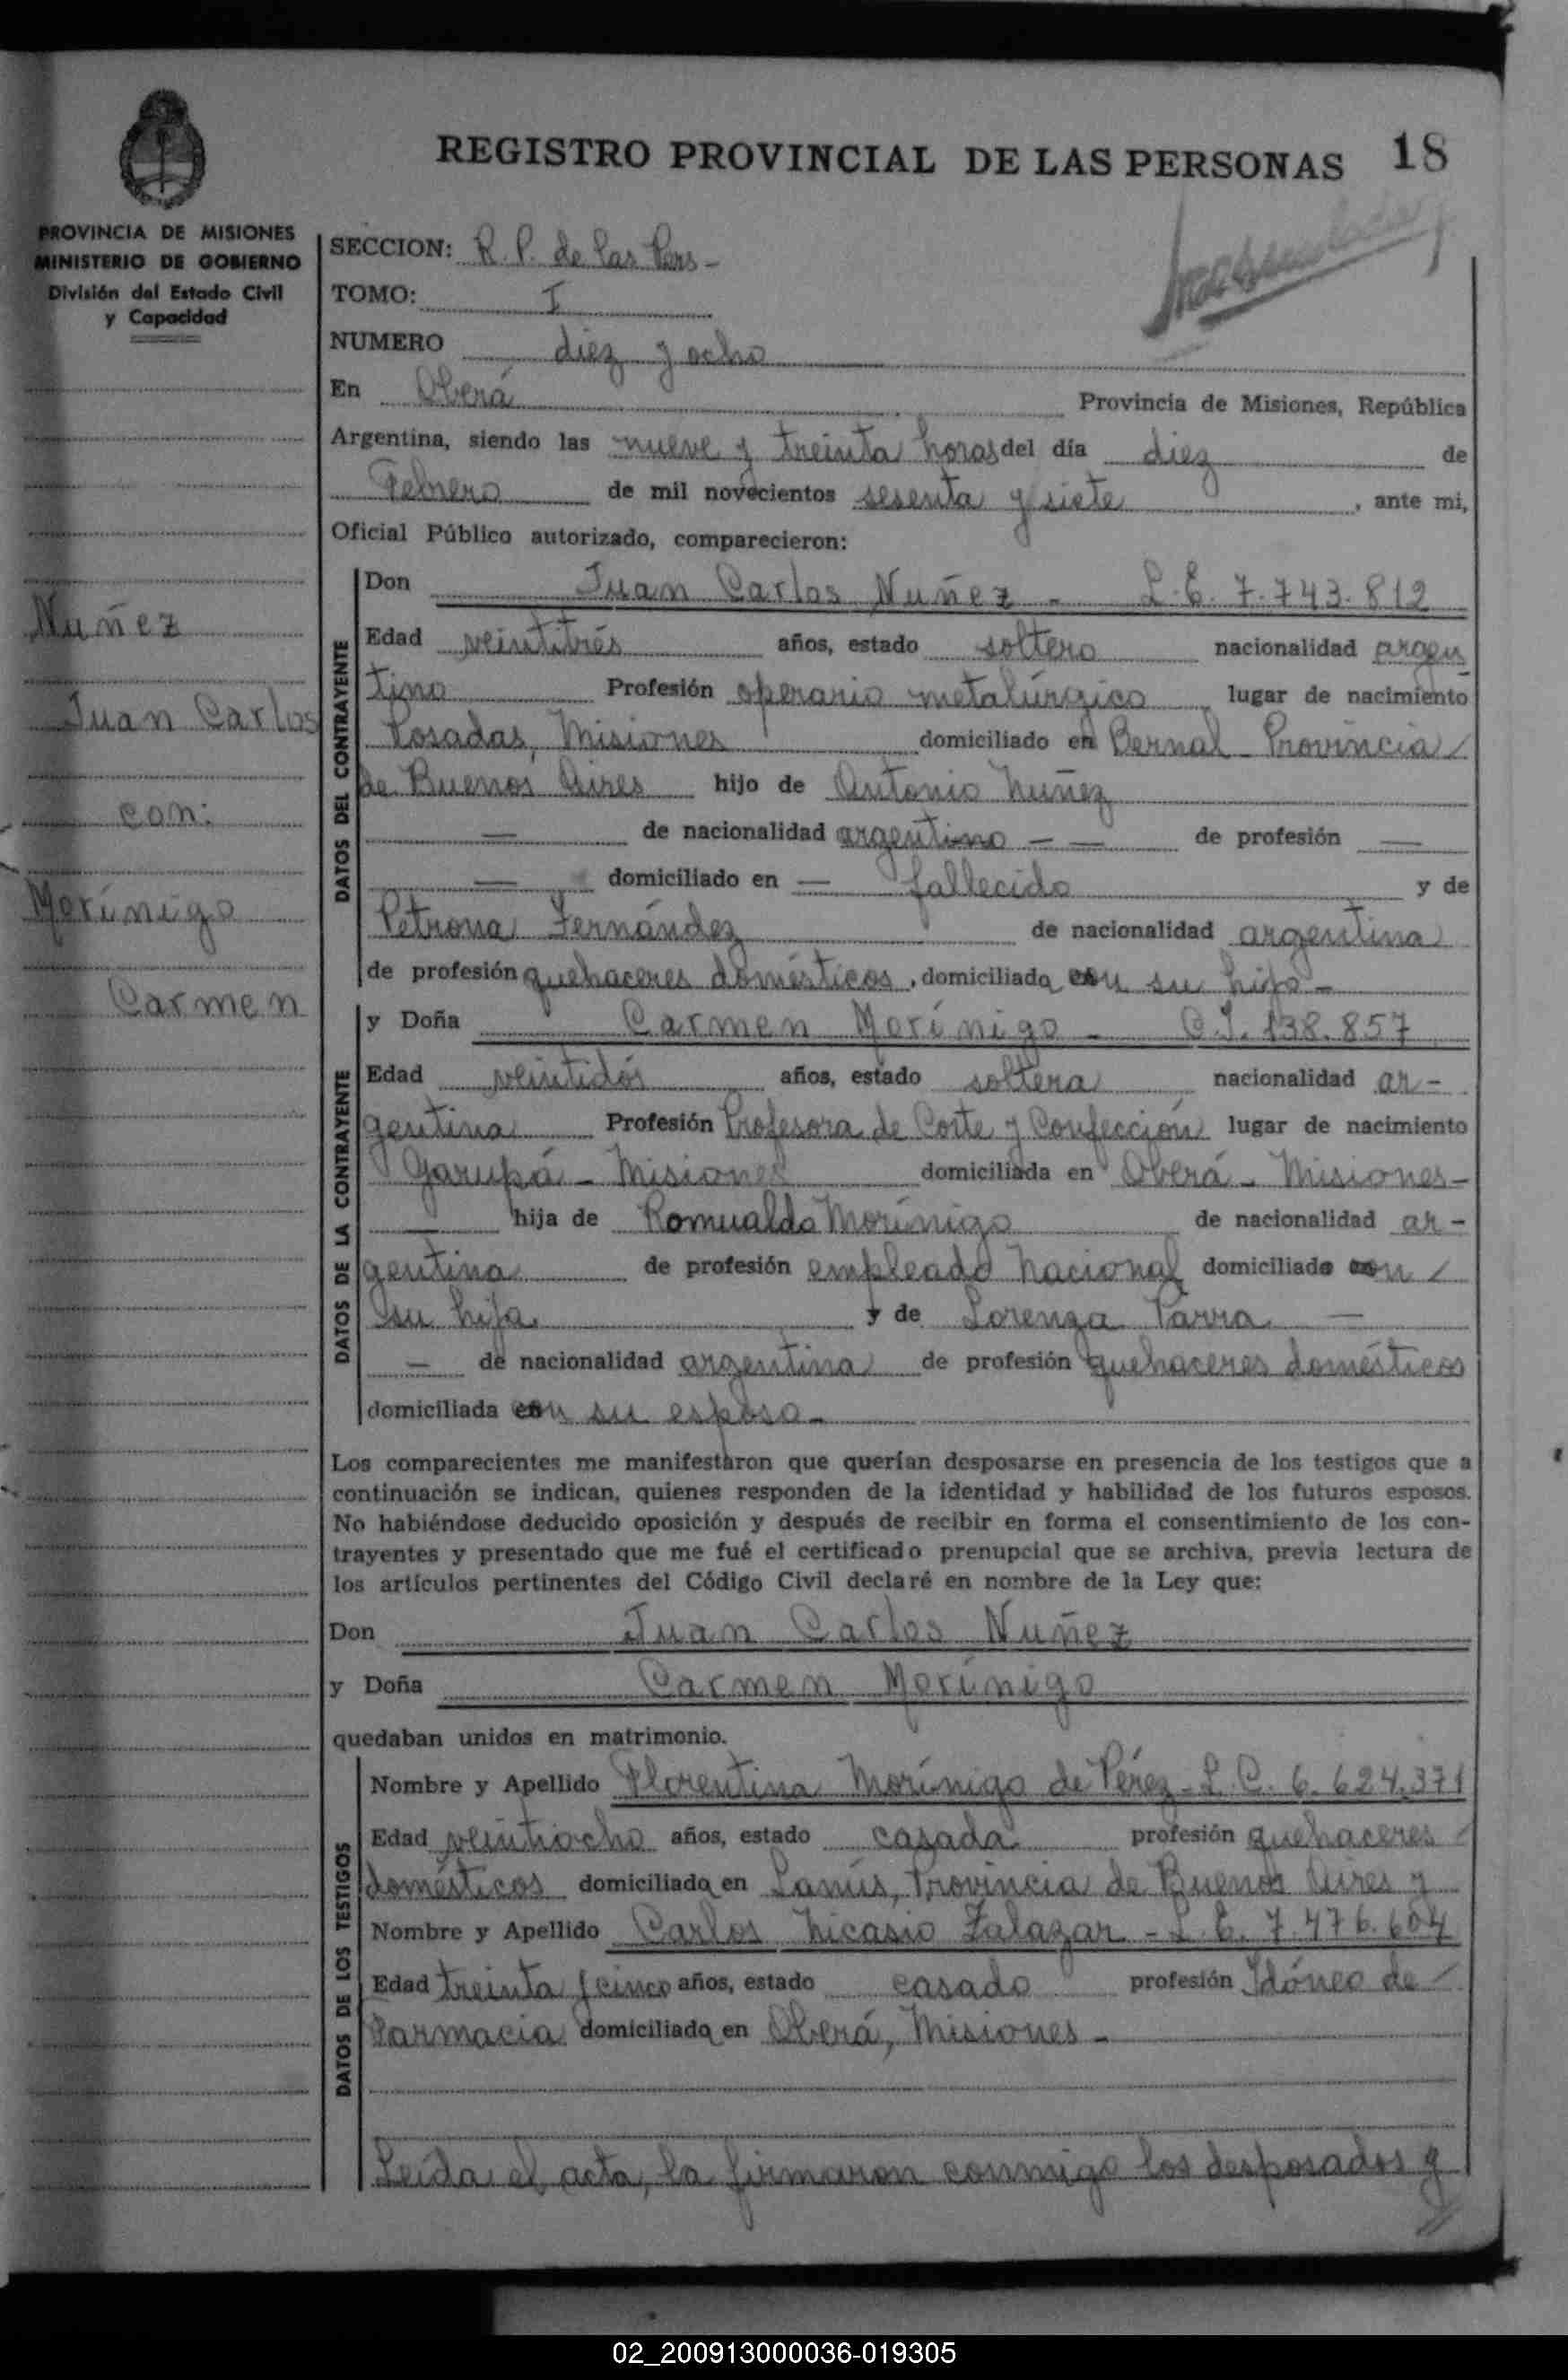 REGISTRO PROVINCIAL DE LAS PERSONAS 18
PROVINCIA DE MISIONES
MINISTERIO DE GOBIERNO
División del Estado Civil
y Capacidad
Nuñez
Juan Carlos
con:
Morínigo
Carmen
SECCION: R. P. de las Pers -
TOMO: I
NUMERO diez y ocho
En Oberá Provincia de Misiones, República
Argentina, siendo las nueve y treinta horas del día diez de
Febrero de mil novecientos sesenta y siete, ante mi,
Oficial Público autorizado, comparecieron:
DATOS DEL CONTRAYENTE
Don Juan Carlos Nuñez - L.E. 7.743.812
Edad veintitrés años, estado soltero nacionalidad argen
tino Profesión operario metalúrgico, lugar de nacimiento
Posadas, Misiones domiciliado en Bernal - Provincia /
de Buenos Aires hijo de Antonio Nuñez
— de nacionalidad argentino — — de profesión —
— domiciliado en — fallecido y de
Petrona Fernández de nacionalidad argentina
de profesión quehaceres domésticos, domiciliada con su hijo -
DATOS DE LA CONTRAYENTE
y Doña Carmen Morínigo - C.I. 138.857
Edad veintidós años, estado soltera nacionalidad ar-
gentina Profesión Profesora de Corte y Confección lugar de nacimiento
Garupá - Misiones domiciliada en Oberá - Misiones -
— hija de Romualdo Morínigo de nacionalidad ar-
gentina de profesión empleado nacional domiciliado con /
su hija y de Lorenza Parra —
— de nacionalidad argentina de profesión quehaceres domésticos
domiciliada con su esposo -
Los comparecientes me manifestaron que querían desposarse en presencia de los testigos que a
continuación se indican, quienes responden de la identidad y habilidad de los futuros esposos.
No habiéndose deducido oposición y después de recibir en forma el consentimiento de los con-
trayentes y presentado que me fué el certificado prenupcial que se archiva, previa lectura de
los artículos pertinentes del Código Civil declaré en nombre de la Ley que:
Don Juan Carlos Nuñez
y Doña Carmen Morínigo
quedaban unidos en matrimonio.
DATOS DE LOS TESTIGOS
Nombre y Apellido Florentina Morínigo de Pérez - L.C. 6.624.371
Edad veintiocho años, estado casada profesión quehaceres /
domésticos domiciliada en Lanús, Provincia de Buenos Aires y
Nombre y Apellido Carlos Nicasio Zalazar - L.E. 7.476.604
Edad treinta y cinco años, estado casado profesión Idóneo de /
Farmacia domiciliado en Oberá, Misiones -
Leída el acta, la firmaron conmigo los desposados y
02_200913000036-019305